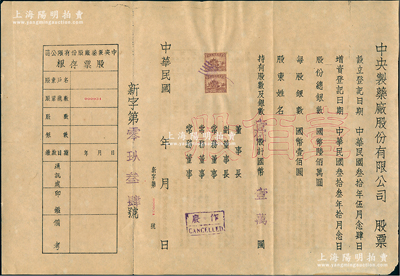 上海陽明拍賣
中央製藥廠股份有限公司 股票
設立登記日期 中華民國叁拾年伍月念肆日
增資登記日期 中華民國叁拾叁年拾月念日
股份總銀數 國幣陸佰萬圓
每股銀數 國幣壹佰圓
股東姓名
持有股數及銀數 股計國幣 壹萬 圓
董事長
副董事長
常務董事
常務董事
常務董事
作廢
CANCELLED
中華民國 年 月 日
新字第零玖叁肆號
中央製藥廠股份有限公司
股票存根
股東姓名
股數
銀數
年 月 日
備考